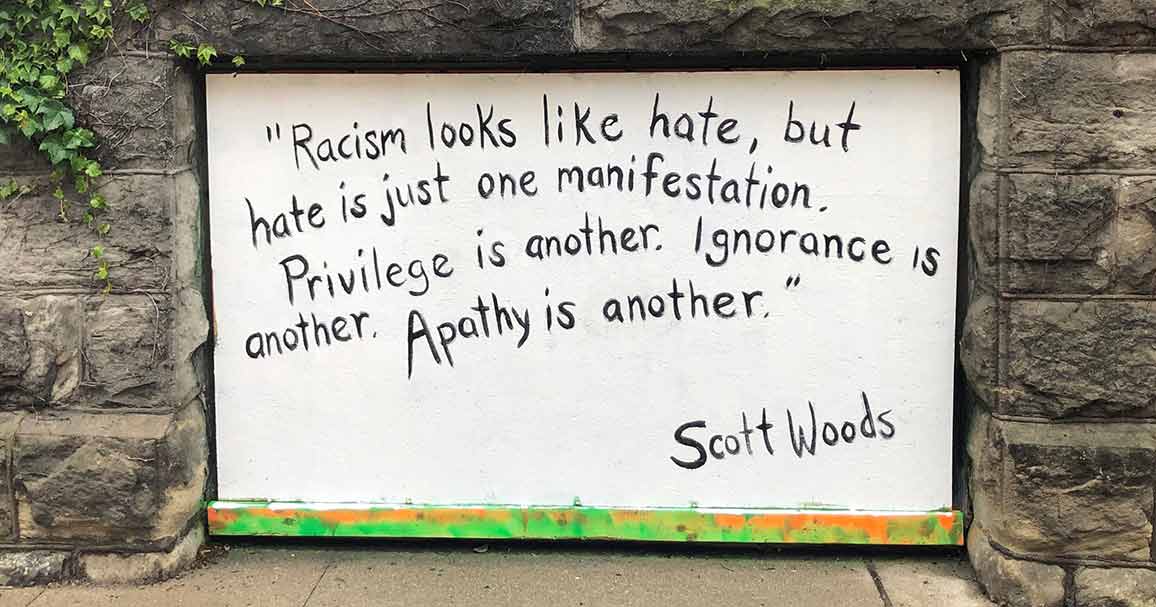 "Racism looks like hate, but
hate is just one manifestation.
Privilege is another. Ignorance is
another. Apathy is another."
Scott Woods